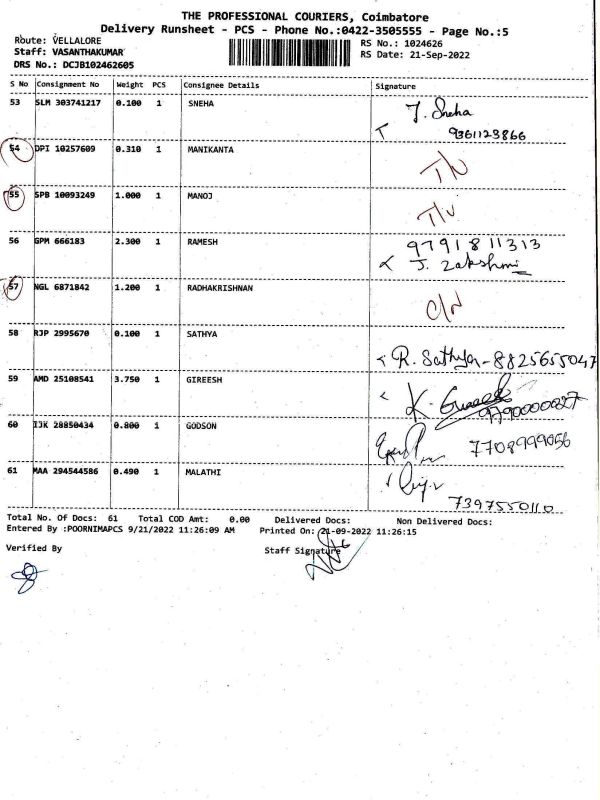 THE PROFESSIONAL COURIERS, Coimbatore
Delivery Runsheet - PCS - Phone No.:0422-3505555 - Page No.:5
Route: VELLALORE
RS No.: 1024626
Staff: VASANTHAKUMAR
RS Date: 21-Sep-2022
DRS No.: DCJB102462605
S No Consignment No Weight PCS Consignee Details Signature
53 SLM 303741217 0.100 1 SNEHA J. Sneha
9361123866
54 DPI 10257609 0.310 1 MANIKANTA T/N
55 SPB 10093249 1.000 1 MANOJ
56 GPM 666183 2.300 1 RAMESH 9791811313
J. Zakshmi
57 NGL 6871842 1.200 1 RADHAKRISHNAN C/N
58 RJP 2995670 0.100 1 SATHYA R. Sathya - 8825655047
59 AMD 25108541 3.750 1 GIREESH K.
60 IJK 28850434 0.800 1 GODSON 7708999056
61 MAA 294544586 0.490 1 MALATHI
7397550110
Total No. Of Docs: 61 Total COD Amt: 0.00 Delivered Docs: Non Delivered Docs:
Entered By :POORNIMAPCS 9/21/2022 11:26:09 AM Printed On: 21-09-2022 11:26:15
Verified By Staff Signature